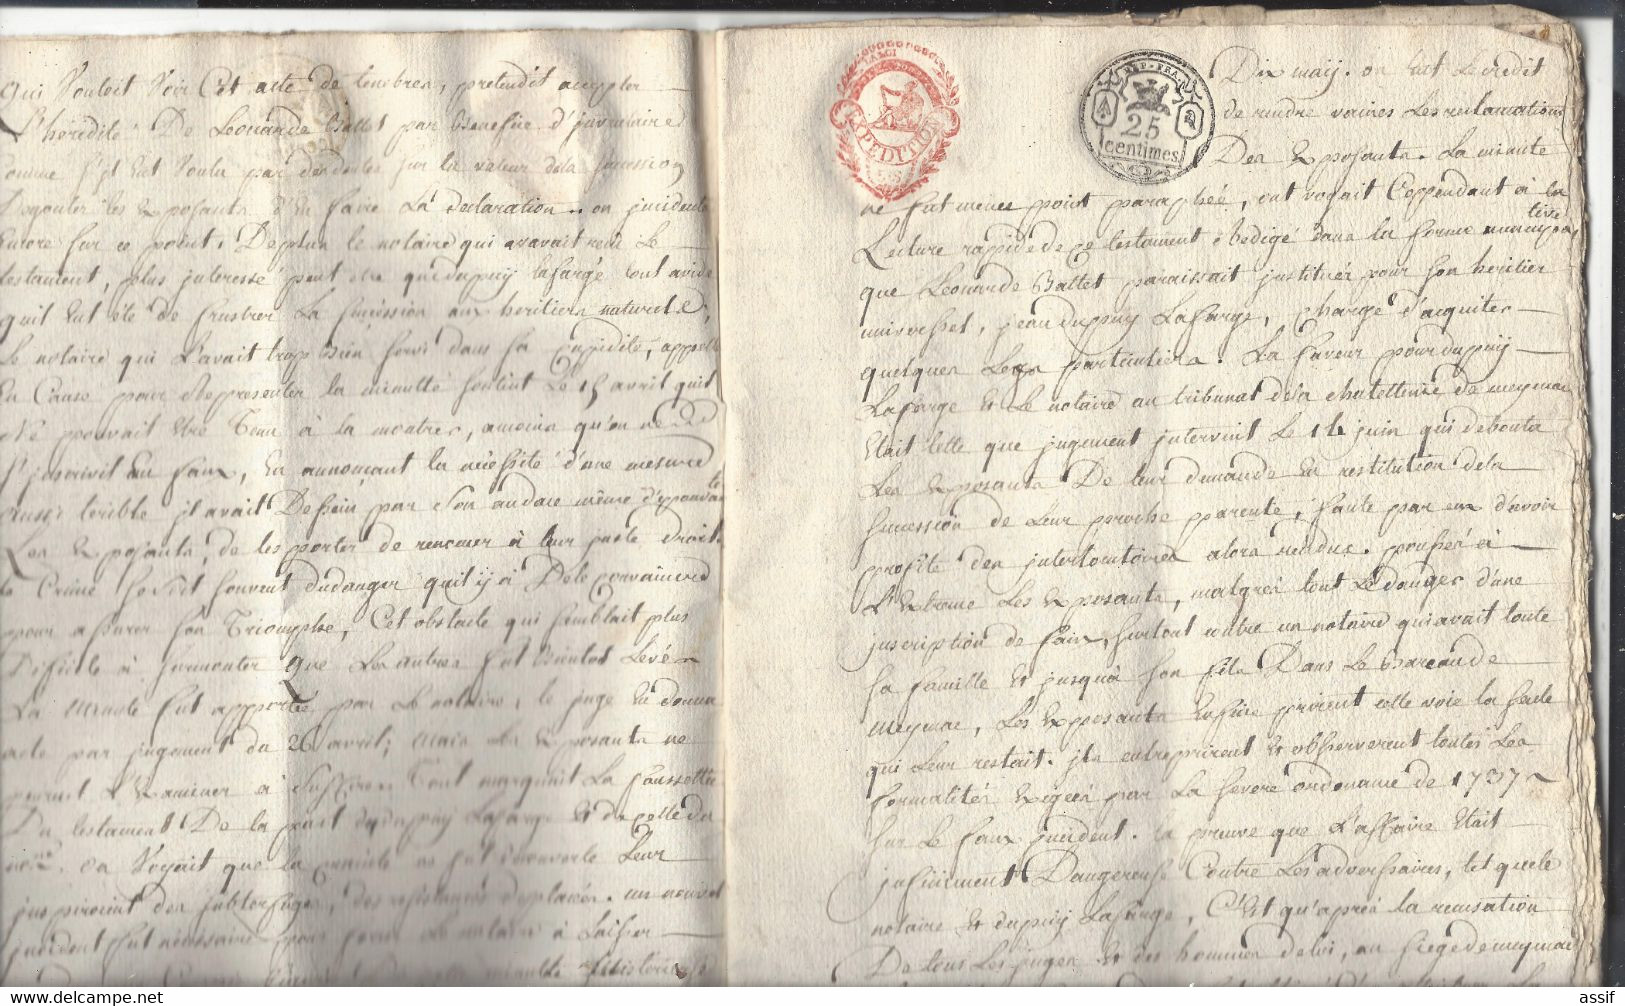 qui vouloit voir cet acte de tenebres, pretendit accepter
L'hérédité De Leonarde Battet par benefice d'inventaire
comme s'il eut voulu par des doutes sur la valeur dela succession
Degouter les exposants d'en faire la declaration. on incidenta
encore sur ce point. De plus le notaire qui avavait recu le
testament, plus interessé peut etre que dupuy lafarge tout avide
quil eut été de frustrer la succession aux heritiers naturels,
Le notaire qui l'avait trop bien servi dans sa cupidité, appellé
en cause pour representer la minutte soutint le 15 avril quil
Ne pouvait etre tenu à la montrer, amoins qu'on ne
s'inscrivit en faux, en annonçant la nécéssité d'une mesure
aussi terible il avait Dessein par son audace même d'épouvanter
Les exposants, de les porter de renoncer à leur juste droit.
le Crime sort souvent dudanger quil y à De le poursuivre
pour assurer son Triomphe, Cet obstacle qui semblait plus
Difficile à surmonter que les autres fut bientot levé
La minute fut apportée par le notaire, le juge en donna
acte par jugement du 26 avril; mais les exposants ne
purent l'examiner à suffire. Tout marquait la faussetté
Du testament De la part de dupuy Lafarge et de celle du
nore. on voyait que la minute ne fut decouverte Leur
inspirerent des subterfuges, des resistances deplacées. un nouvel
incident fut nécéssaire pour forcer le notaire à laisser
TARGI
EXPEDITION
REP. FRA.
25
centimes
Dix may. on eut le credit
de rendre vaines les reclamations
Des exposants. La minute
ne fut meme point paraphée, ont voyait Cependant à la
Lecture rapide de ce testament redigé dans la forme nuncupative,
que Leonarde Battet paraissait instituér pour son heritier
universel, jean dupuy Lafarge, chargé d'acquiter
quelques Legs particuliers. La faveur pour dupuy
Lafarge et le notaire au tribunal dela chatellenie de meymac
était telle que jugement intervint le 14 juin qui debouta
Les exposants De leur demande en restitution dela
succession de leur proche pparente, faute par eux d'avoir
profité des interlocutoires alors rendus. poussés à
l'extreme les exposants, malgrés tout le danger d'une
inscription de faux, surtout contre un notaire qui avait toute
sa famille et jusquà son fils Dans le Bareau de
meymac, les exposants enfin prirent cette voie la seule
qui leur restait. ils entreprirent et observerent toutes les
formalités exigées par la severe ordonnance de 1737
sur le faux incident. la preuve que l'affaire était
infiniment Dangereuse Contre les adversaires, tel que le
notaire et dupuy Lafarge, C'est qu'après la recusation
De tous les juges et des hommes de loi, au siege de meymac
assif